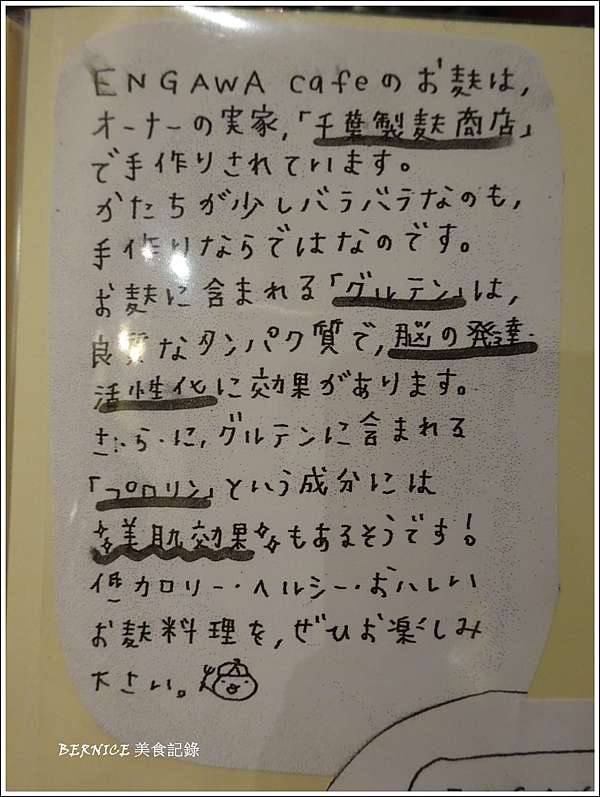 ENGAWA cafeのお麩は,
オーナーの実家,「千葉製麩商店」
で手作りされています。
かたちが少しバラバラなのも,
手作りならではなのです。
お麩に含まれる「グルテン」は,
良質なタンパク質で,脳の発達・
活性化に効果があります。
さ・ら・に,グルテンに含まれる
「プロリン」という成分には
美肌効果もあるそうです!
低カロリー・ヘルシー・おいしい
お麩料理を,ぜひお楽しみ
下さい。
BERNICE 美食記錄